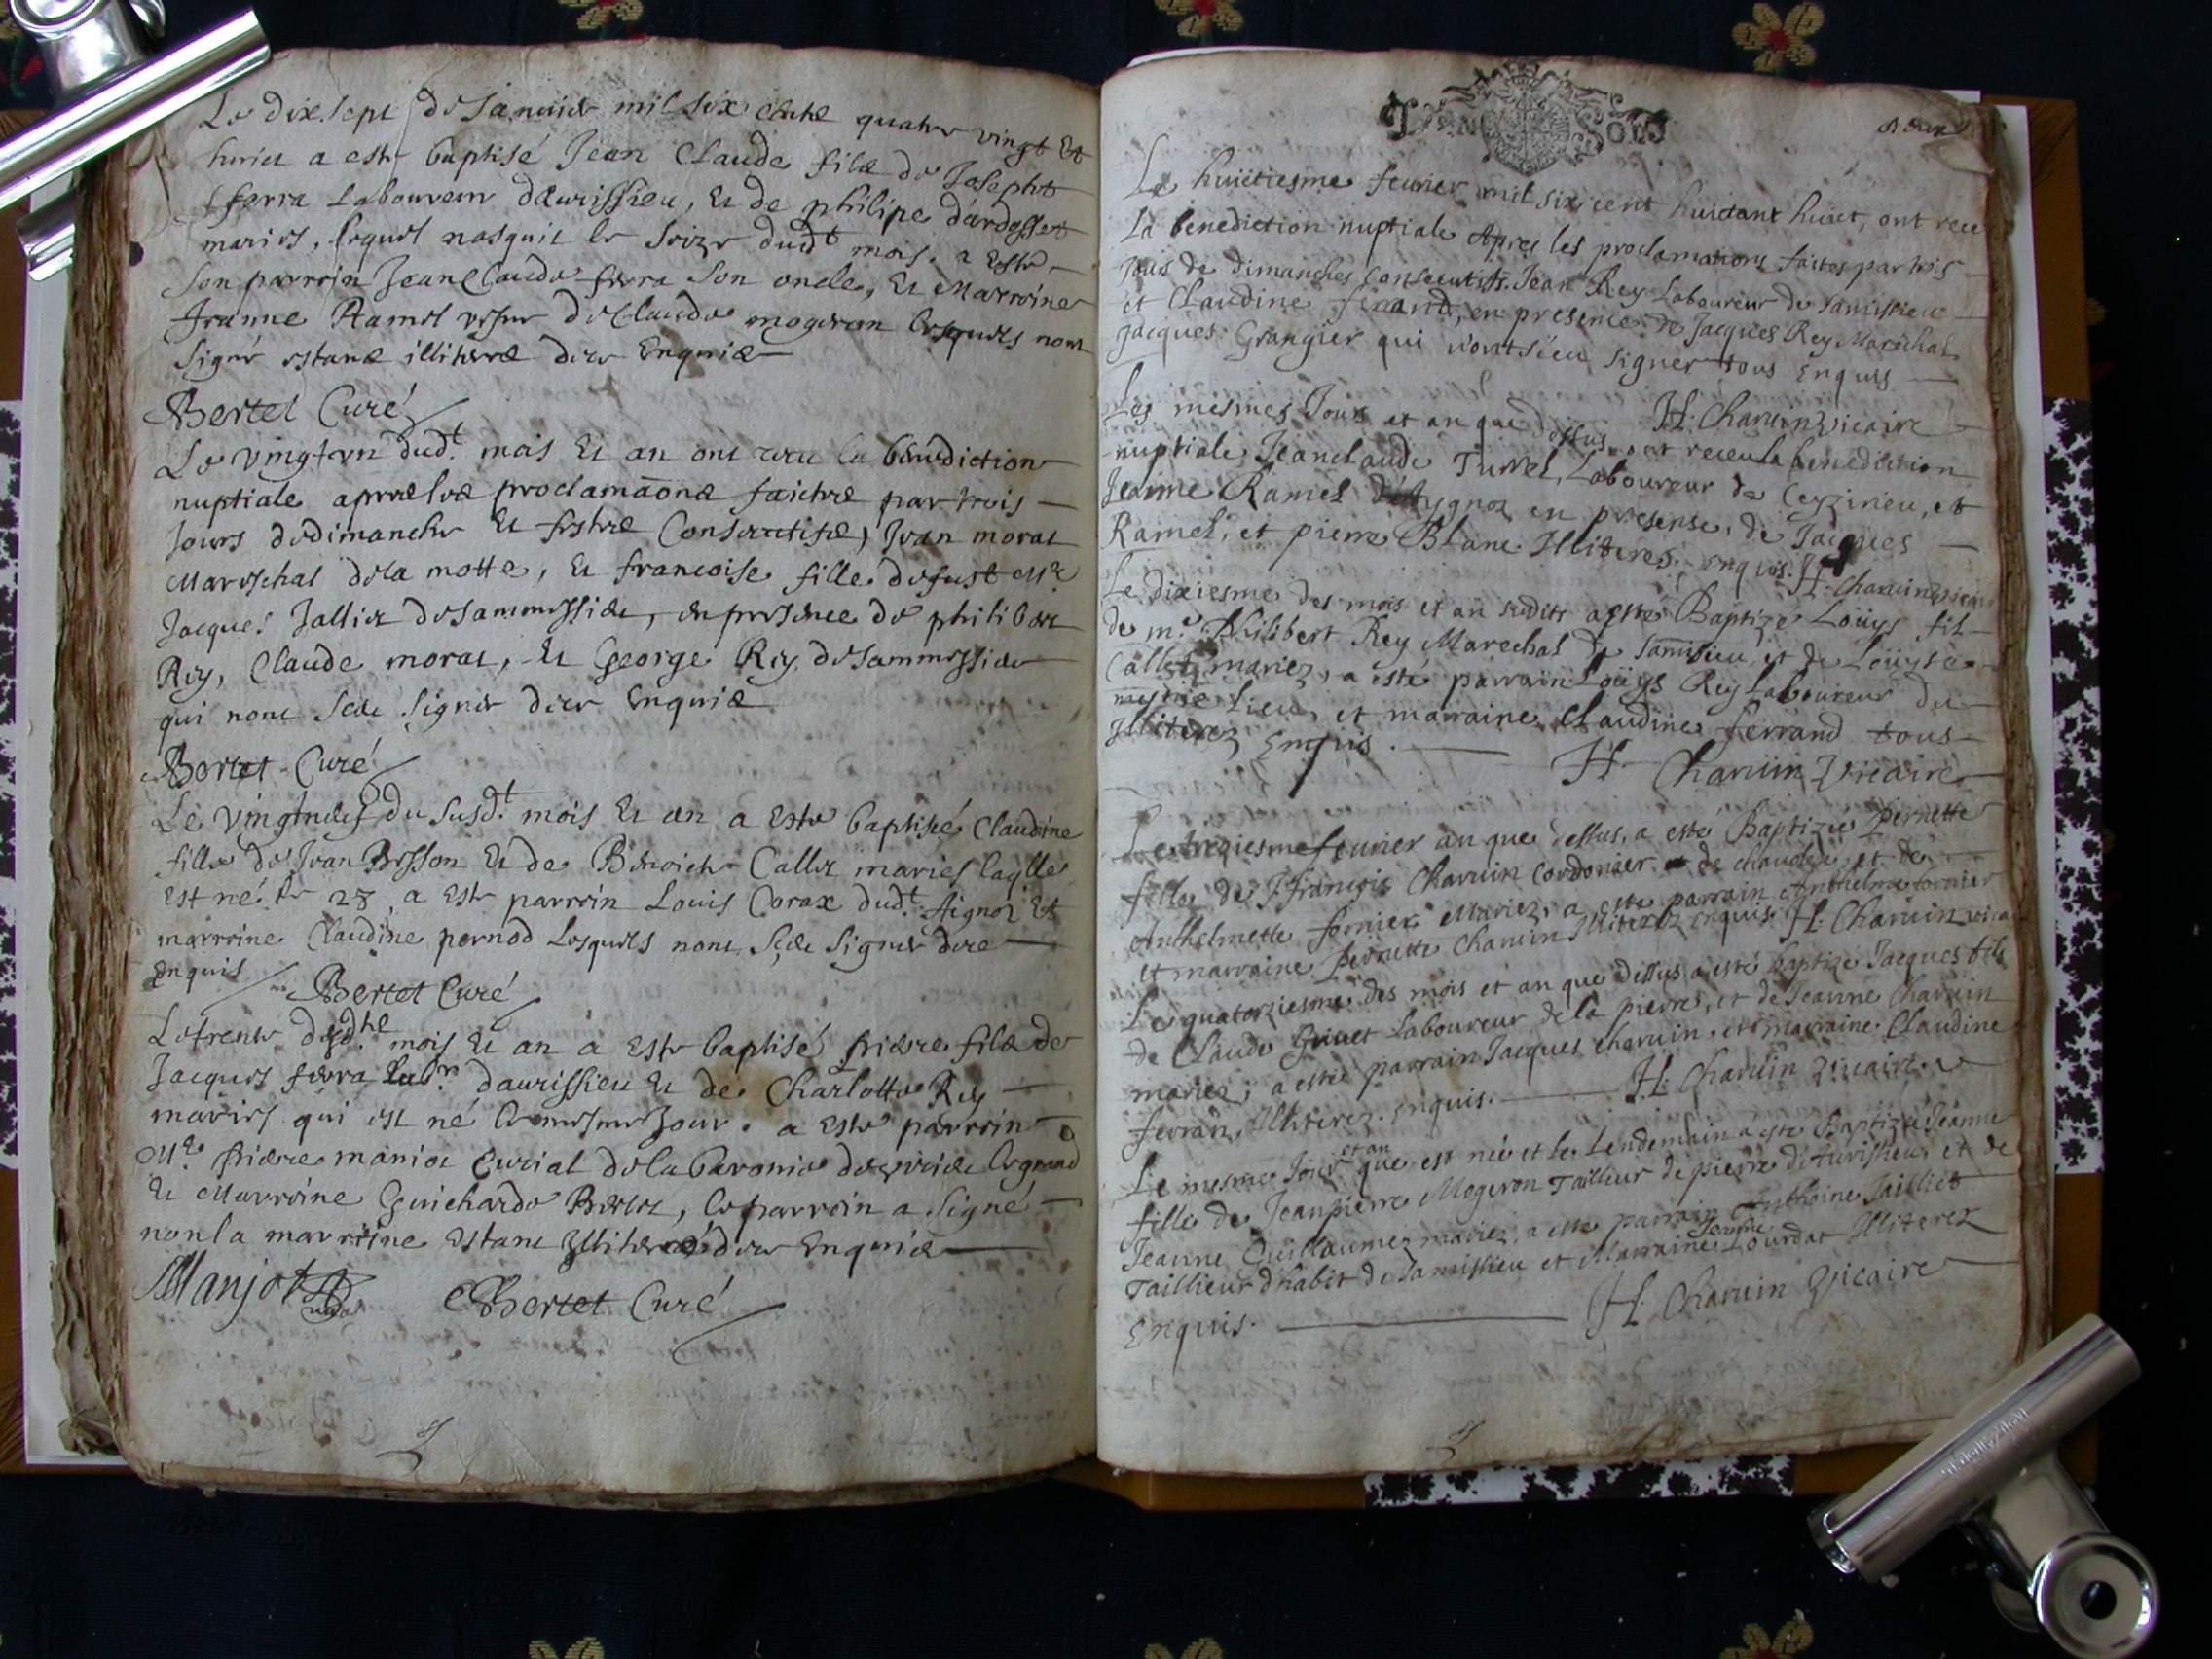 Le dix sept de Januier mil six cents quatre vingt Et
huict a este baptisé Jean Claude fils de Joseph
fferra Laboureur daurissieu, Et de philipe dardosset
maries, lequel nasquit le seize dud.t mois. a esté
son parroin Jean Claude ferra son oncle, Et Marroine
Jeanne Ramel vefue de Claude mogeron lesquels nont
signé estans illiterés de ce Enquis
Bertet Curé
Le vingt vn dud.t mois Et an ont receu la bénédiction
nuptiale apres les proclamaõns faictes par trois
Jours de dimanche Et festes Consecutifs, Jean morat
Mareschal de la motte, Et francoise fille de fust Me
Jacques Jallier de sammessieu, en presence de philibert
Rey, Claude morat, Et George Rey de sammessieu
qui nont sceu signer de ce Enquis
Bertet Curé
Le Vingt du susd.t mois Et an a Este baptisée Claudine
fille de Jean Besson Et de Benoiste Callet mariés laqlle
Est né le 28, a Este parroin Louis Corax dud.t Aignoz Et
marroine Claudine pernod Lesquels nont Sceu Signer de ce
Enquis Bertet Curé
Le trente dud.t mois Et an a Este baptisé pierre fils de
Jacques ferra Labr daurissieu Et de Charlotte Rey
mariés qui est né le mesme Jour. a Esté parroin
Me pierre maniot Curial de la baronie de le grand
Et Marroine Guicharde Bertet, le parroin a Signé
non la marroine Estant Illiteré de ce Enquis
Manjot Bertet Curé
deux
Le huictiesme feurier mil six cent huictant huict, ont receu
La benediction nuptiale Apres les proclamations faites par trois
jours de dimanches consecutifs. Jean Rey Laboureur de Samissieu
et Claudine ferrand, en presence de Jacques Rey Marechal
Jacques Grangier qui n'ont sceu signer tous Enquis
H. Charuin Vicaire
Les mesmes Jour et an que dessus ont receu la benediction
nuptiale Jeanclaude Turrel, Laboureur de Ceyzirieu, et
Jeanne Ramel d'Aygnoz en presense, de Jacques
Ramel, et pierre Blanc Illiterez, enquis. H. Charuin vicaire
Le dixiesme des mois et an sudits a esté Baptize Loüys fil
de m.e Philibert Rey Marechal de Samisieu, et de Loüyse
Callet mariez, a esté parrain Loüys Rey Laboureur du
mesme lieu, et marraine Claudine ferrand tous
Illiterez Enquis.
H. Charuin Vicaire
Le treziesme feurier an que dessus, a esté Baptizée Pernette
fille de François Charuin Cordonier de et de
Anthelmette fornier Mariez, a esté parrain Anthelme fornier
et marraine Pernette Charuin Illiterez enquis H. Charuin vicaire
Le quatorziesme des mois et an que dessus a esté baptize Jacques fils
de Claude Griuet Laboureur de la pierre, et de Jeanne Charuin
mariez, a esté parrain Jacques charuin, et marraine Claudine
ferran, Illiterez. enquis. H. Charuin Vicaire.
et an
Le mesme Jour que est née et le Lendemain a esté Baptizée Jeanne
fille de Jeanpierre Mogeron Tailleur de pierre d'Aurissieu, et de
Jeanne Guillaumez mariez, a esté parrain Anthoine Jailliet
Jeanne
Taillieur d'habit de Samissieu et Marraine Lourdat Illiterez
Enquis. H. Charuin Vicaire